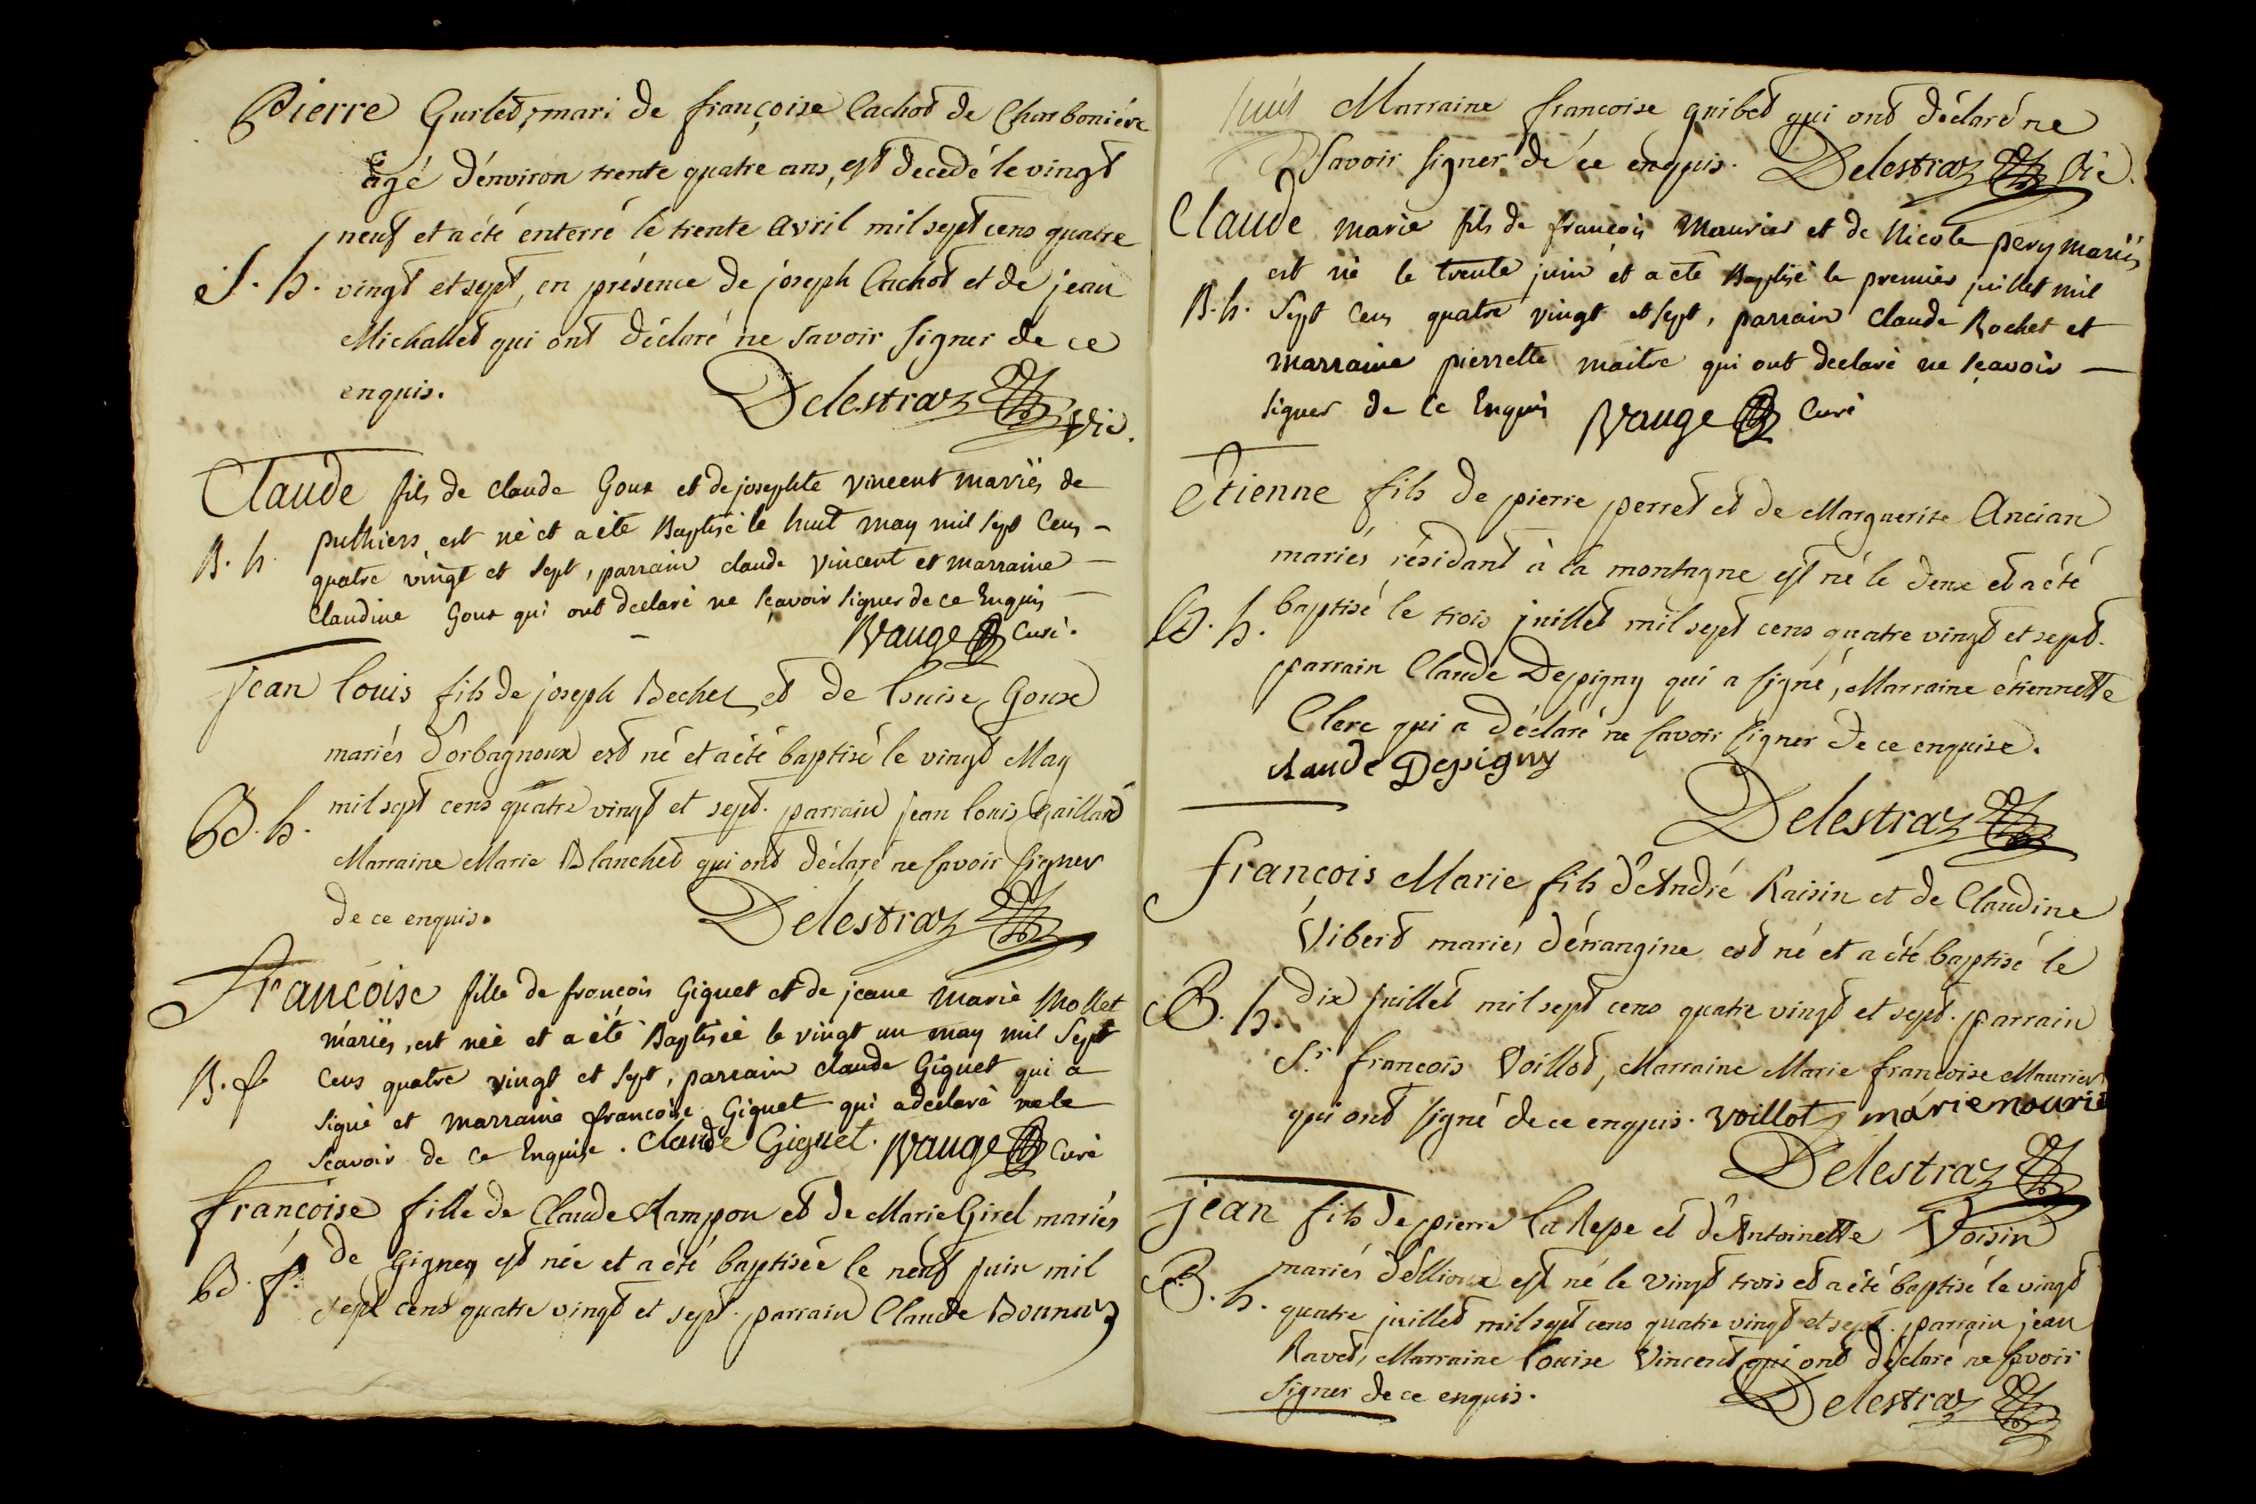 Pierre Gurlet, mari de françoise Cachot de Charboniére
agé d'environ trente quatre ans, est decedé le vingt
neuf et a été enterré le trente avril mil sept cens quatre
S. h. vingt et sept, en présence de joseph Cachot et de jean
Michallet qui ont déclaré ne savoir signer de ce
enquis. Delestraz Vic.
Claude fils de claude Goux et de josephte vincent mariés de
B. h. puthiers, est né et a été Baptisé le huit may mil sept Cens
quatre vingt et sept, parrain claude vincent et marraine
Claudine Goux qui ont declaré ne sçavoir signer de ce Enquis
Vauge Curé.
jean louis fils de joseph Bechet et de louise Goux
mariés d'orbagnoux est né et a été baptisé le vingt May
B. h. mil sept cens quatre vingt et sept. parrain jean louis Gaillard
Marraine Marie Blanchet qui ont déclaré ne savoir signer
de ce enquis. Delestraz
Françoise fille de françois Giguet et de jeane Marie Mollet
mariés, est née et a été Baptisée le vingt un may mil Sept
B. f. Cens quatre vingt et sept, parrain claude Giguet qui a
signé et marraine françoise Giguet qui a declaré ne le
scavoir de ce Enquise. Claude Giguet. Vauge Curé
françoise fille de Claude Rampon et de Marie Girel mariés
B. f. de Gigney est née et a été baptisée le neuf juin mil
sept cens quatre vingt et sept. parrain Claude Bounaz
Marraine francoise guibet qui ont déclaré ne
savoir signer de ce enquis. Delestraz Vic.
Claude marie fils de françois Maurier et de Nicole pery mariés
est né le trente juin et a eté Baptisé le premier juillet mil
B. h. Sept Cens quatre vingt et sept, parrain Claude Rochet et
marraine pierrette maitre qui ont declaré ne sçavoir
signer de ce Enquis Vauge Curé
Etienne fils de pierre perret et de Marguerite Ancian
mariés résidant à la montagne est né le deux et a été
B. h. baptisé le trois juillet mil sept cens quatre vingt et sept.
parrain Claude Depigny qui a signé, Marraine étiennette
Clerc qui a déclaré ne savoir signer de ce enquise.
claude Depigny
Delestraz
françois Marie fils d'André Raisin et de Claudine
Vibert mariés d'étrangine est né et a été baptisé le
B. h. dix juillet mil sept cens quatre vingt et sept. parrain
Sr. francois Voillot, Marraine Marie françoise Maurier
qui ont signé de ce enquis. voillot marie mourié
Delestraz
jean fils de pierre la Repe et d'Antoinette Voisin
mariés d'ellioux est né le vingt trois et a été baptisé le vingt
B. h. quatre juillet mil sept cens quatre vingt et sept. parrain jean
Ravet, Marraine louise Vincent qui ont déclaré ne savoir
signer de ce enquis. Delestraz